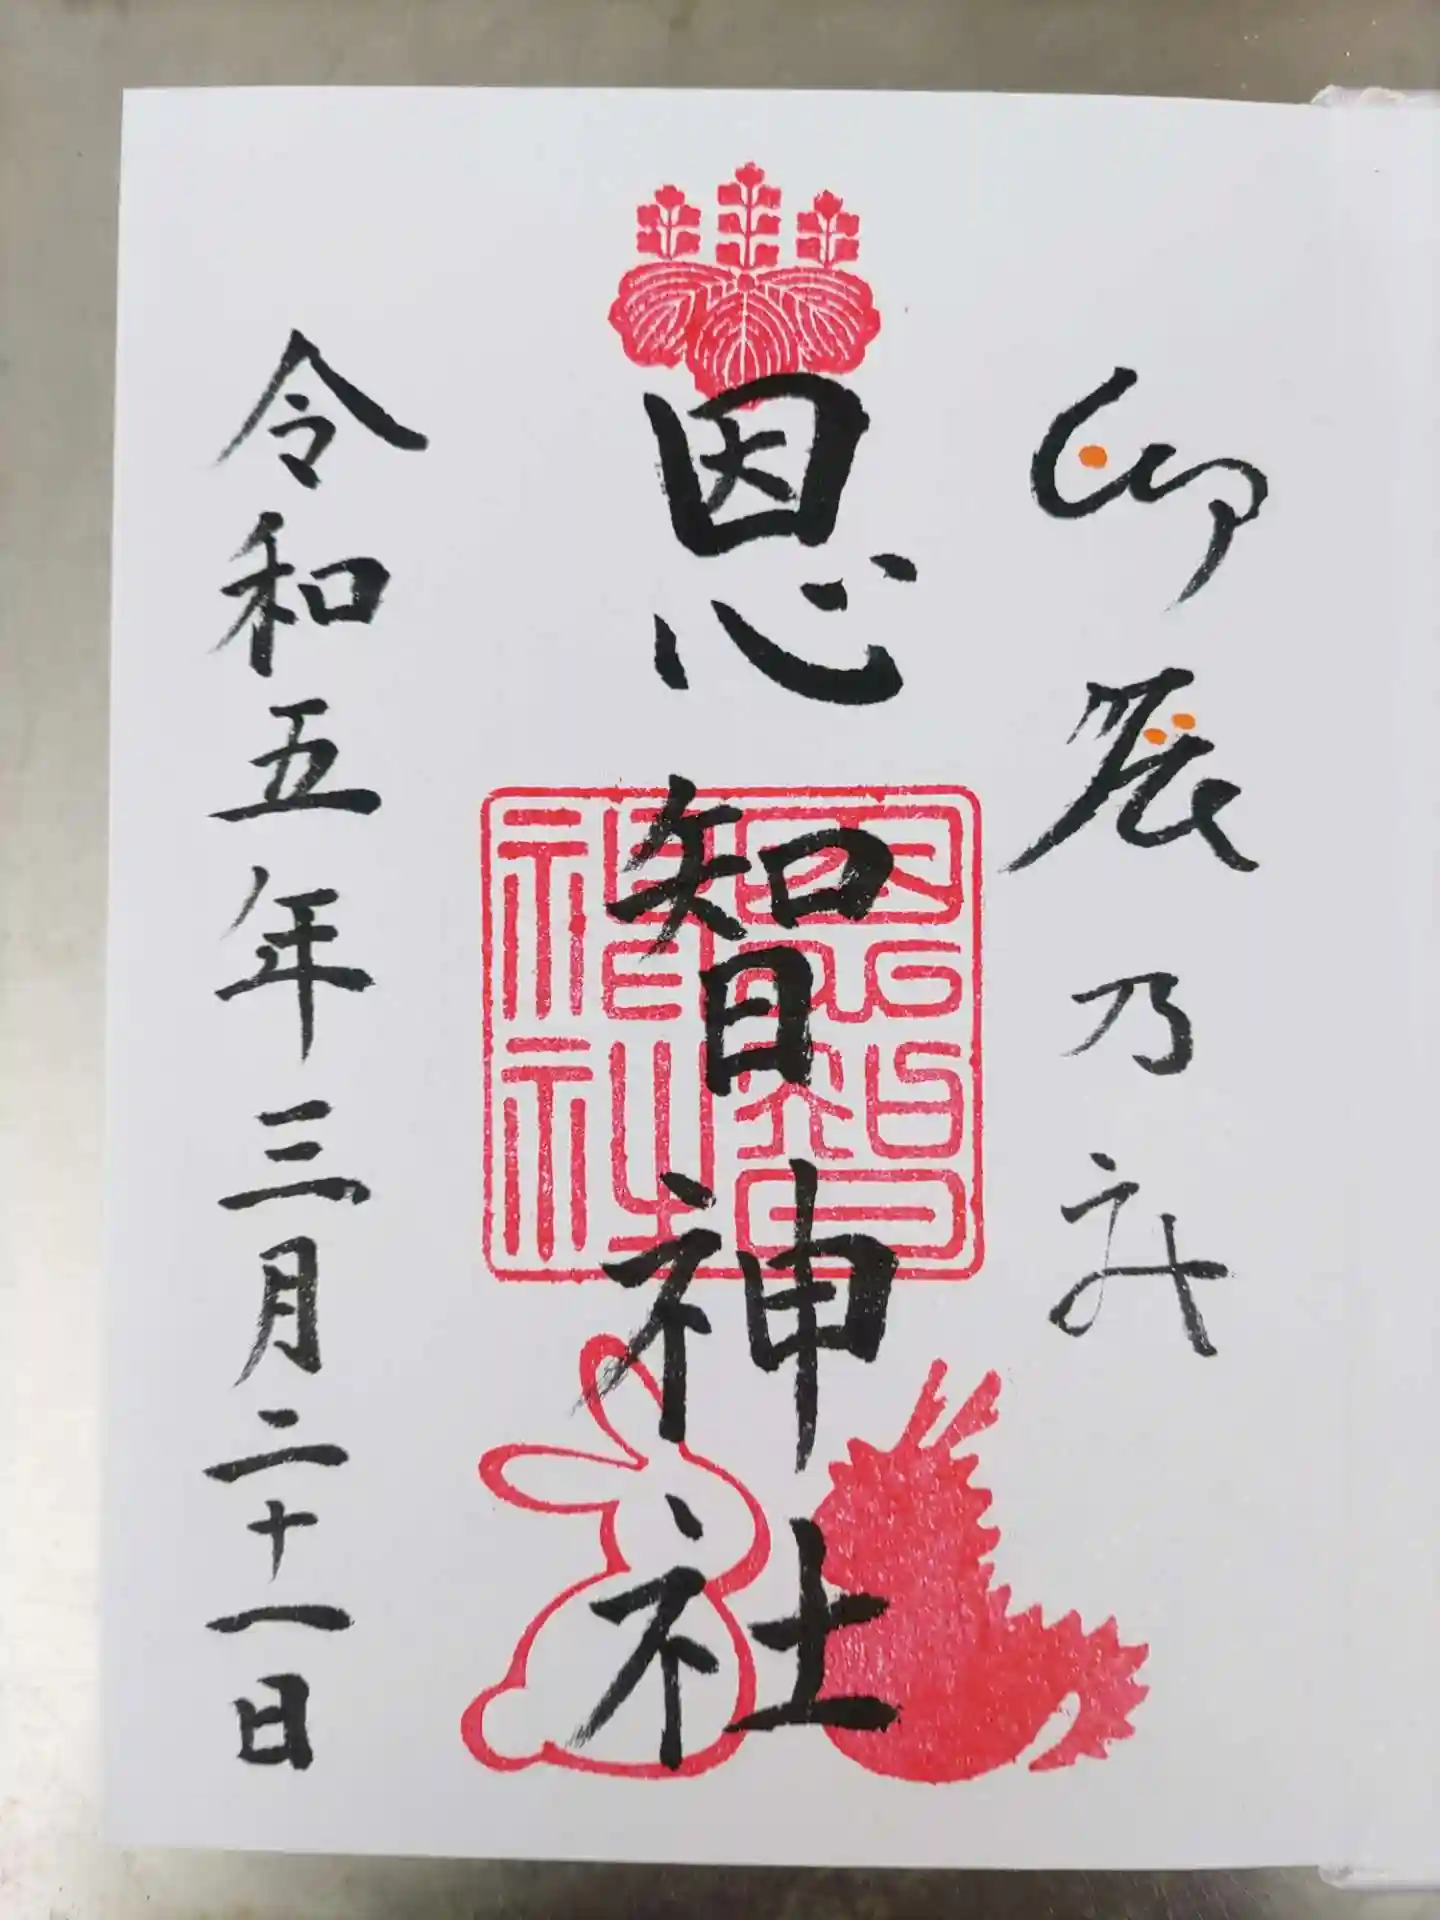 卯辰乃訪
恩智神社
恩智
神社
令和五年三月二十一日